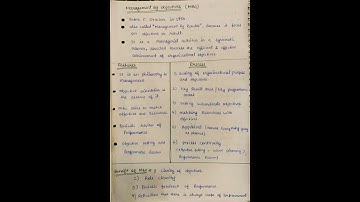 Management by objectives (MBO)
Peter F. Drucker in 1954
also called "Management by Results", because it focus
on objective or result.
It is a Managerial activities in a systematic
manner, directed towards the efficient & effective
achievement of organizational objectives
Features
It is an philosophy to
Management
objective orientation is
the essence of it
MBO aims to
objective and resources
Periodic review of
Performance
objective setting and
Performance review
Process
1) Setting of organizational purpose
and objectives
2) Key Result area / key performance
area
3) Setting subordinate objective
4) Matching Resources with
objective
5) Appraisal
6) process continuity
(objective setting → action planning →
Performance Review)
Benefit of MBO → 1) Clarity of objective
2) Role clearity
3) Periodic feedback of Performance
4) Realisation that there is always scope of improvement